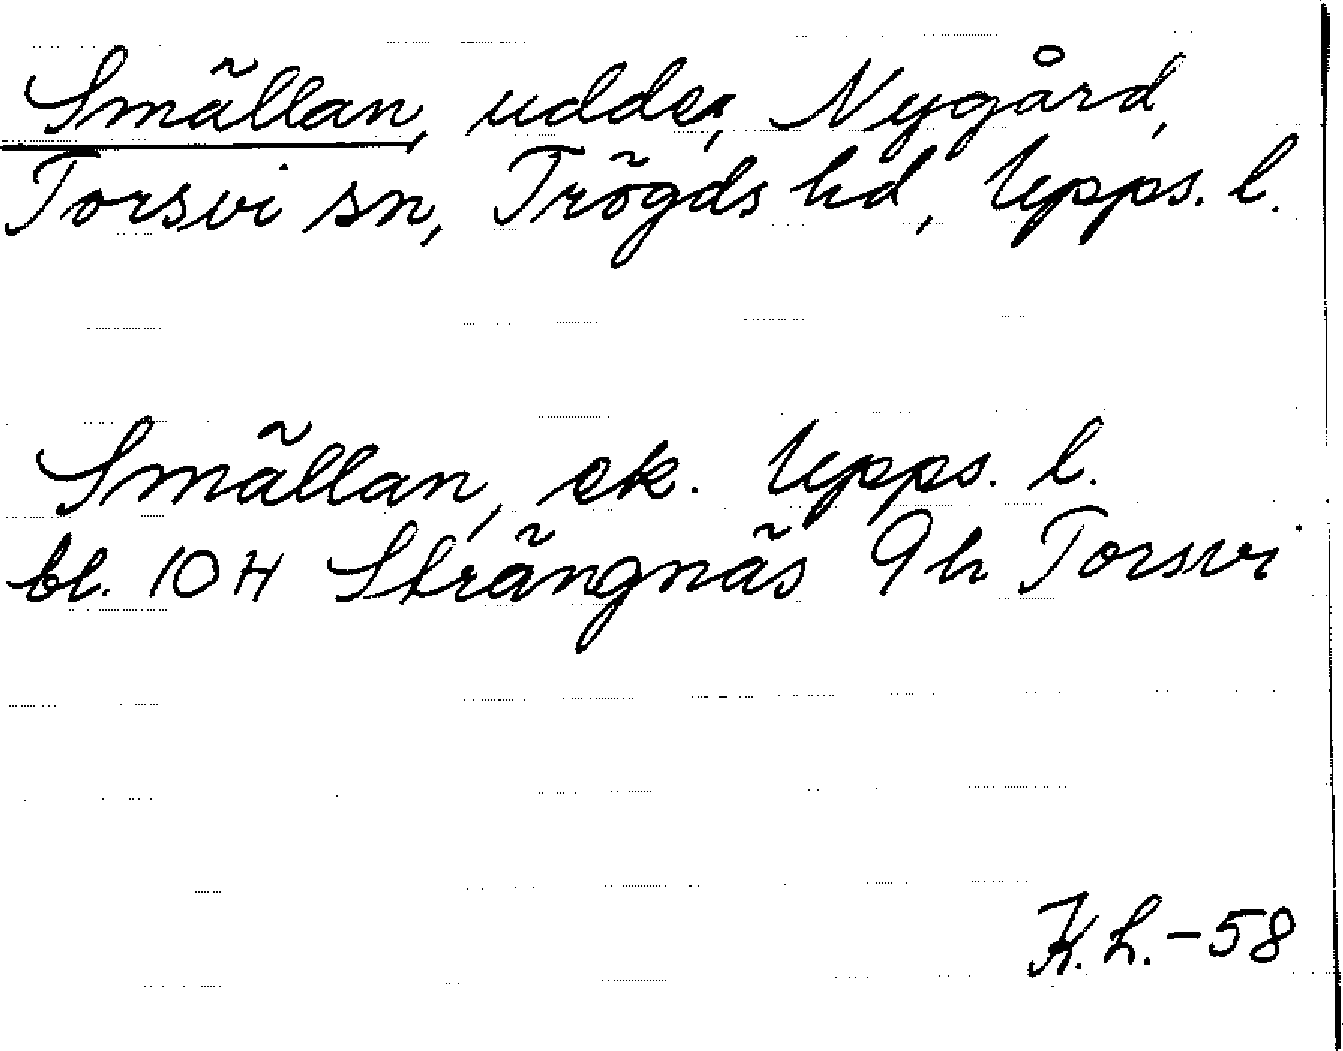 Smällan, udde, Nygård,
Torsvi sn, Trögds hd, Upps. l.
Smällan, ek. Upps. l.
bl. 10 H Strängnäs 9 h Torsvi
K.L.-58